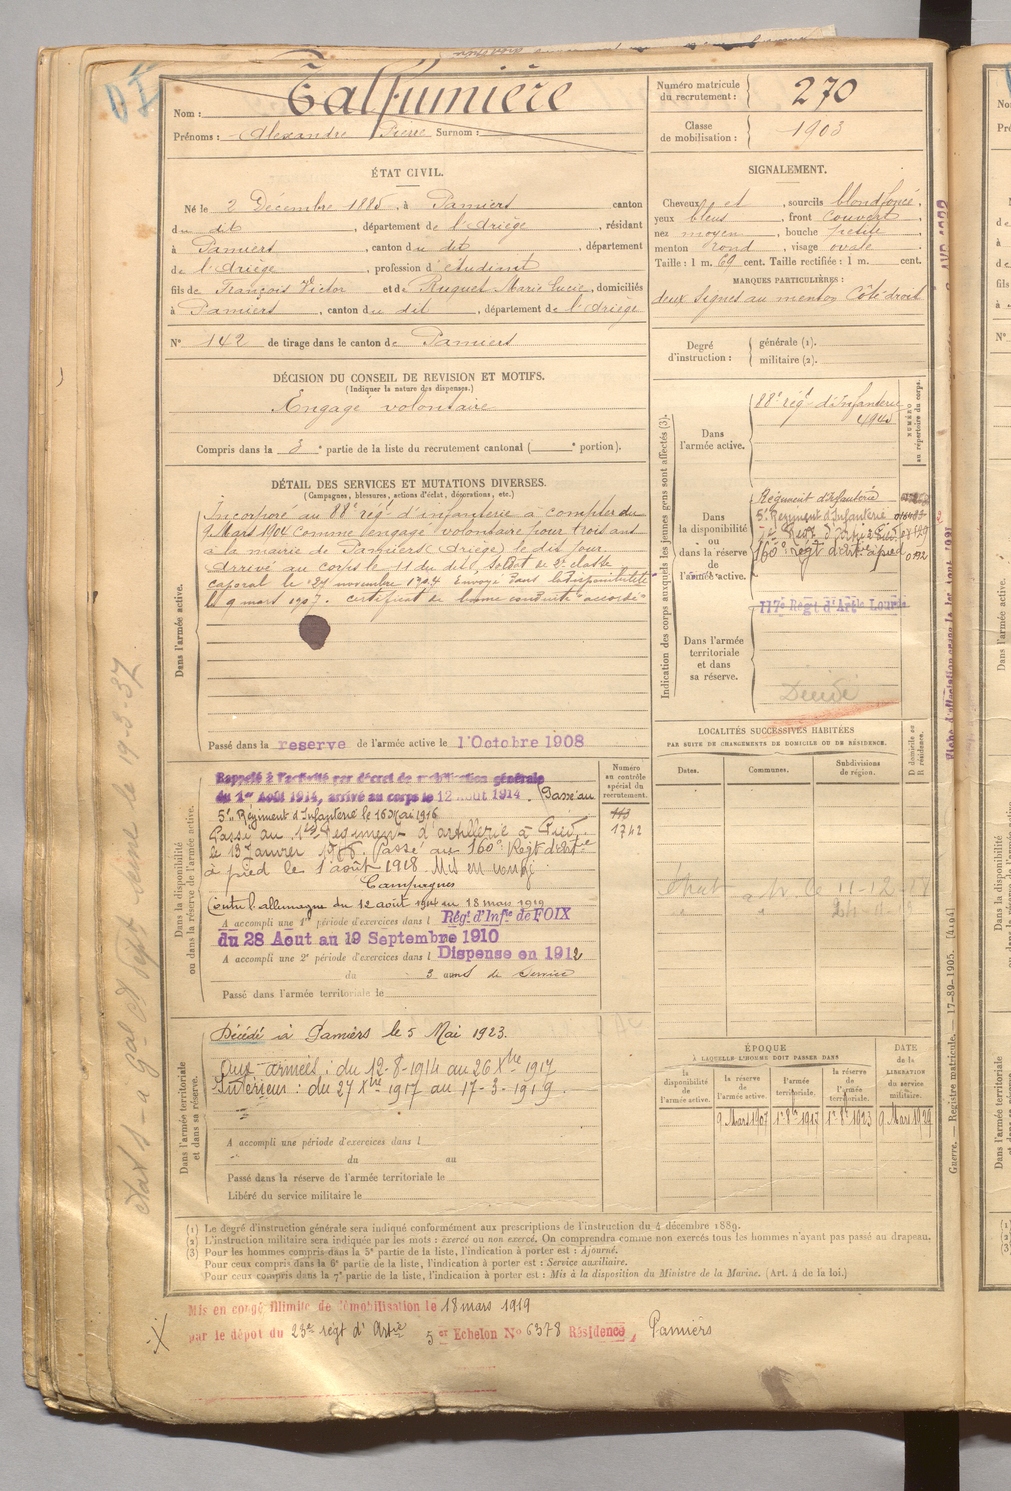 Nom : Talfumière
Prénoms : Alexandre Pierre Surnom :
Numéro matricule du recrutement : 270
Classe de mobilisation : 1903
ÉTAT CIVIL.
Né le 2 Décembre 1885, à Pamiers canton
du dit, département de l'Ariège, résidant
à Pamiers, canton du dit, département
de l'Ariège, profession d'étudiant
fils de François Victor et de Ruquet Marie Lucie, domiciliés
à Pamiers, canton du dit, département de l'Ariège
N° 142 de tirage dans le canton de Pamiers
SIGNALEMENT.
Cheveux et, sourcils blond foncé,
yeux bleus, front couvert,
nez moyen, bouche petite,
menton rond, visage ovale
Taille : 1 m. 69 cent. Taille rectifiée : 1 m. cent.
MARQUES PARTICULIÈRES :
deux signes au menton Côté droit
Degré d'instruction : générale (1).
militaire (2).
DÉCISION DU CONSEIL DE REVISION ET MOTIFS.
(Indiquer la nature des dispenses.)
Engagé volontaire
Compris dans la 3e partie de la liste du recrutement cantonal ( e portion).
DÉTAIL DES SERVICES ET MUTATIONS DIVERSES.
(Campagnes, blessures, actions d'éclat, décorations, etc.)
Dans l'armée active.
Incorporé au 88e régt d'infanterie à compter du
9 Mars 1904 comme engagé volontaire pour trois ans
à la mairie de Pamiers (Ariège) le dit jour
Arrivé au corps le 11 du dit, soldat de 2e classe
caporal le 27 novembre 1904 Envoyé dans la disponibilité
le 9 mars 1907. certificat de bonne conduite "accordé"
Passé dans la reserve de l'armée active le 1 Octobre 1908
Indication des corps auxquels les jeunes gens sont affectés (3).
NUMÉRO au répertoire du corps.
Dans l'armée active.
88e régt d'Infanterie
Dans la disponibilité ou dans la réserve de l'armée active.
Régiment d'Infanterie
5e Régiment d'Infanterie
160e régt d'artie à pied
Dans l'armée territoriale et dans sa réserve.
117e Régt d'Artie Lourde
Décédé
LOCALITÉS SUCCESSIVES HABITÉES
PAR SUITE DE CHANGEMENTS DE DOMICILE OU DE RÉSIDENCE.
Dates. Communes. Subdivisions de région. D domicile ou R résidence.
Dans la disponibilité ou dans la réserve de l'armée active.
Numéro au contrôle spécial du recrutement.
1742
Rappelé à l'activité par décret de mobilisation générale
du 1er Août 1914, arrivé au corps le 12 Aout 1914. Passé au
5e Régiment d'Infanterie le 16 Mai 1916
Passé au 1er Régiment d'artillerie à Pied
le 13 Janvier 1918. Passé au 160e Régt d'artie
à pied le 1 août 1918. Mis en congé
Campagnes
Contre l'allemagne du 12 août 1914 au 18 mars 1919
A accompli une 1re période d'exercices dans l Régt d'Infie de FOIX
du 28 Aout au 19 Septembre 1910
A accompli une 2e période d'exercices dans l Dispense en 1912
du 3 ans de service
Passé dans l'armée territoriale le
Dans l'armée territoriale et dans sa réserve.
Décédé à Pamiers le 5 Mai 1923.
Aux armées : du 12-8-1914 au 26 Xbre 1917
Intérieur : du 27 Xbre 1917 au 17-3-1919
A accompli une période d'exercices dans l
du au
Passé dans la réserve de l'armée territoriale le
Libéré du service militaire le
ÉPOQUE
À LAQUELLE L'HOMME DOIT PASSER DANS
la disponibilité de l'armée active. la réserve de l'armée active. l'armée territoriale. la réserve de l'armée territoriale.
DATE de la LIBÉRATION du service militaire.
9 Mars 1907 1r 8bre 1917 1r 8bre 1923 9 Mars 1929
(1) Le degré d'instruction générale sera indiqué conformément aux prescriptions de l'instruction du 4 décembre 1889.
(2) L'instruction militaire sera indiquée par les mots : exercé ou non exercé. On comprendra comme non exercés tous les hommes n'ayant pas passé au drapeau.
(3) Pour les hommes compris dans la 5e partie de la liste, l'indication à porter est : Ajourné.
Pour ceux compris dans la 6e partie de la liste, l'indication à porter est : Service auxiliaire.
Pour ceux compris dans la 7e partie de la liste, l'indication à porter est : Mis à la disposition du Ministre de la Marine. (Art. 4 de la loi.)
Guerre. — Registre matricule. — 17-89-1905. [4104]
Mis en congé illimité de démobilisation le 18 mars 1919
par le dépot du 23e régt d'Artie 5er Echelon No 6378 Résidence, Pamiers